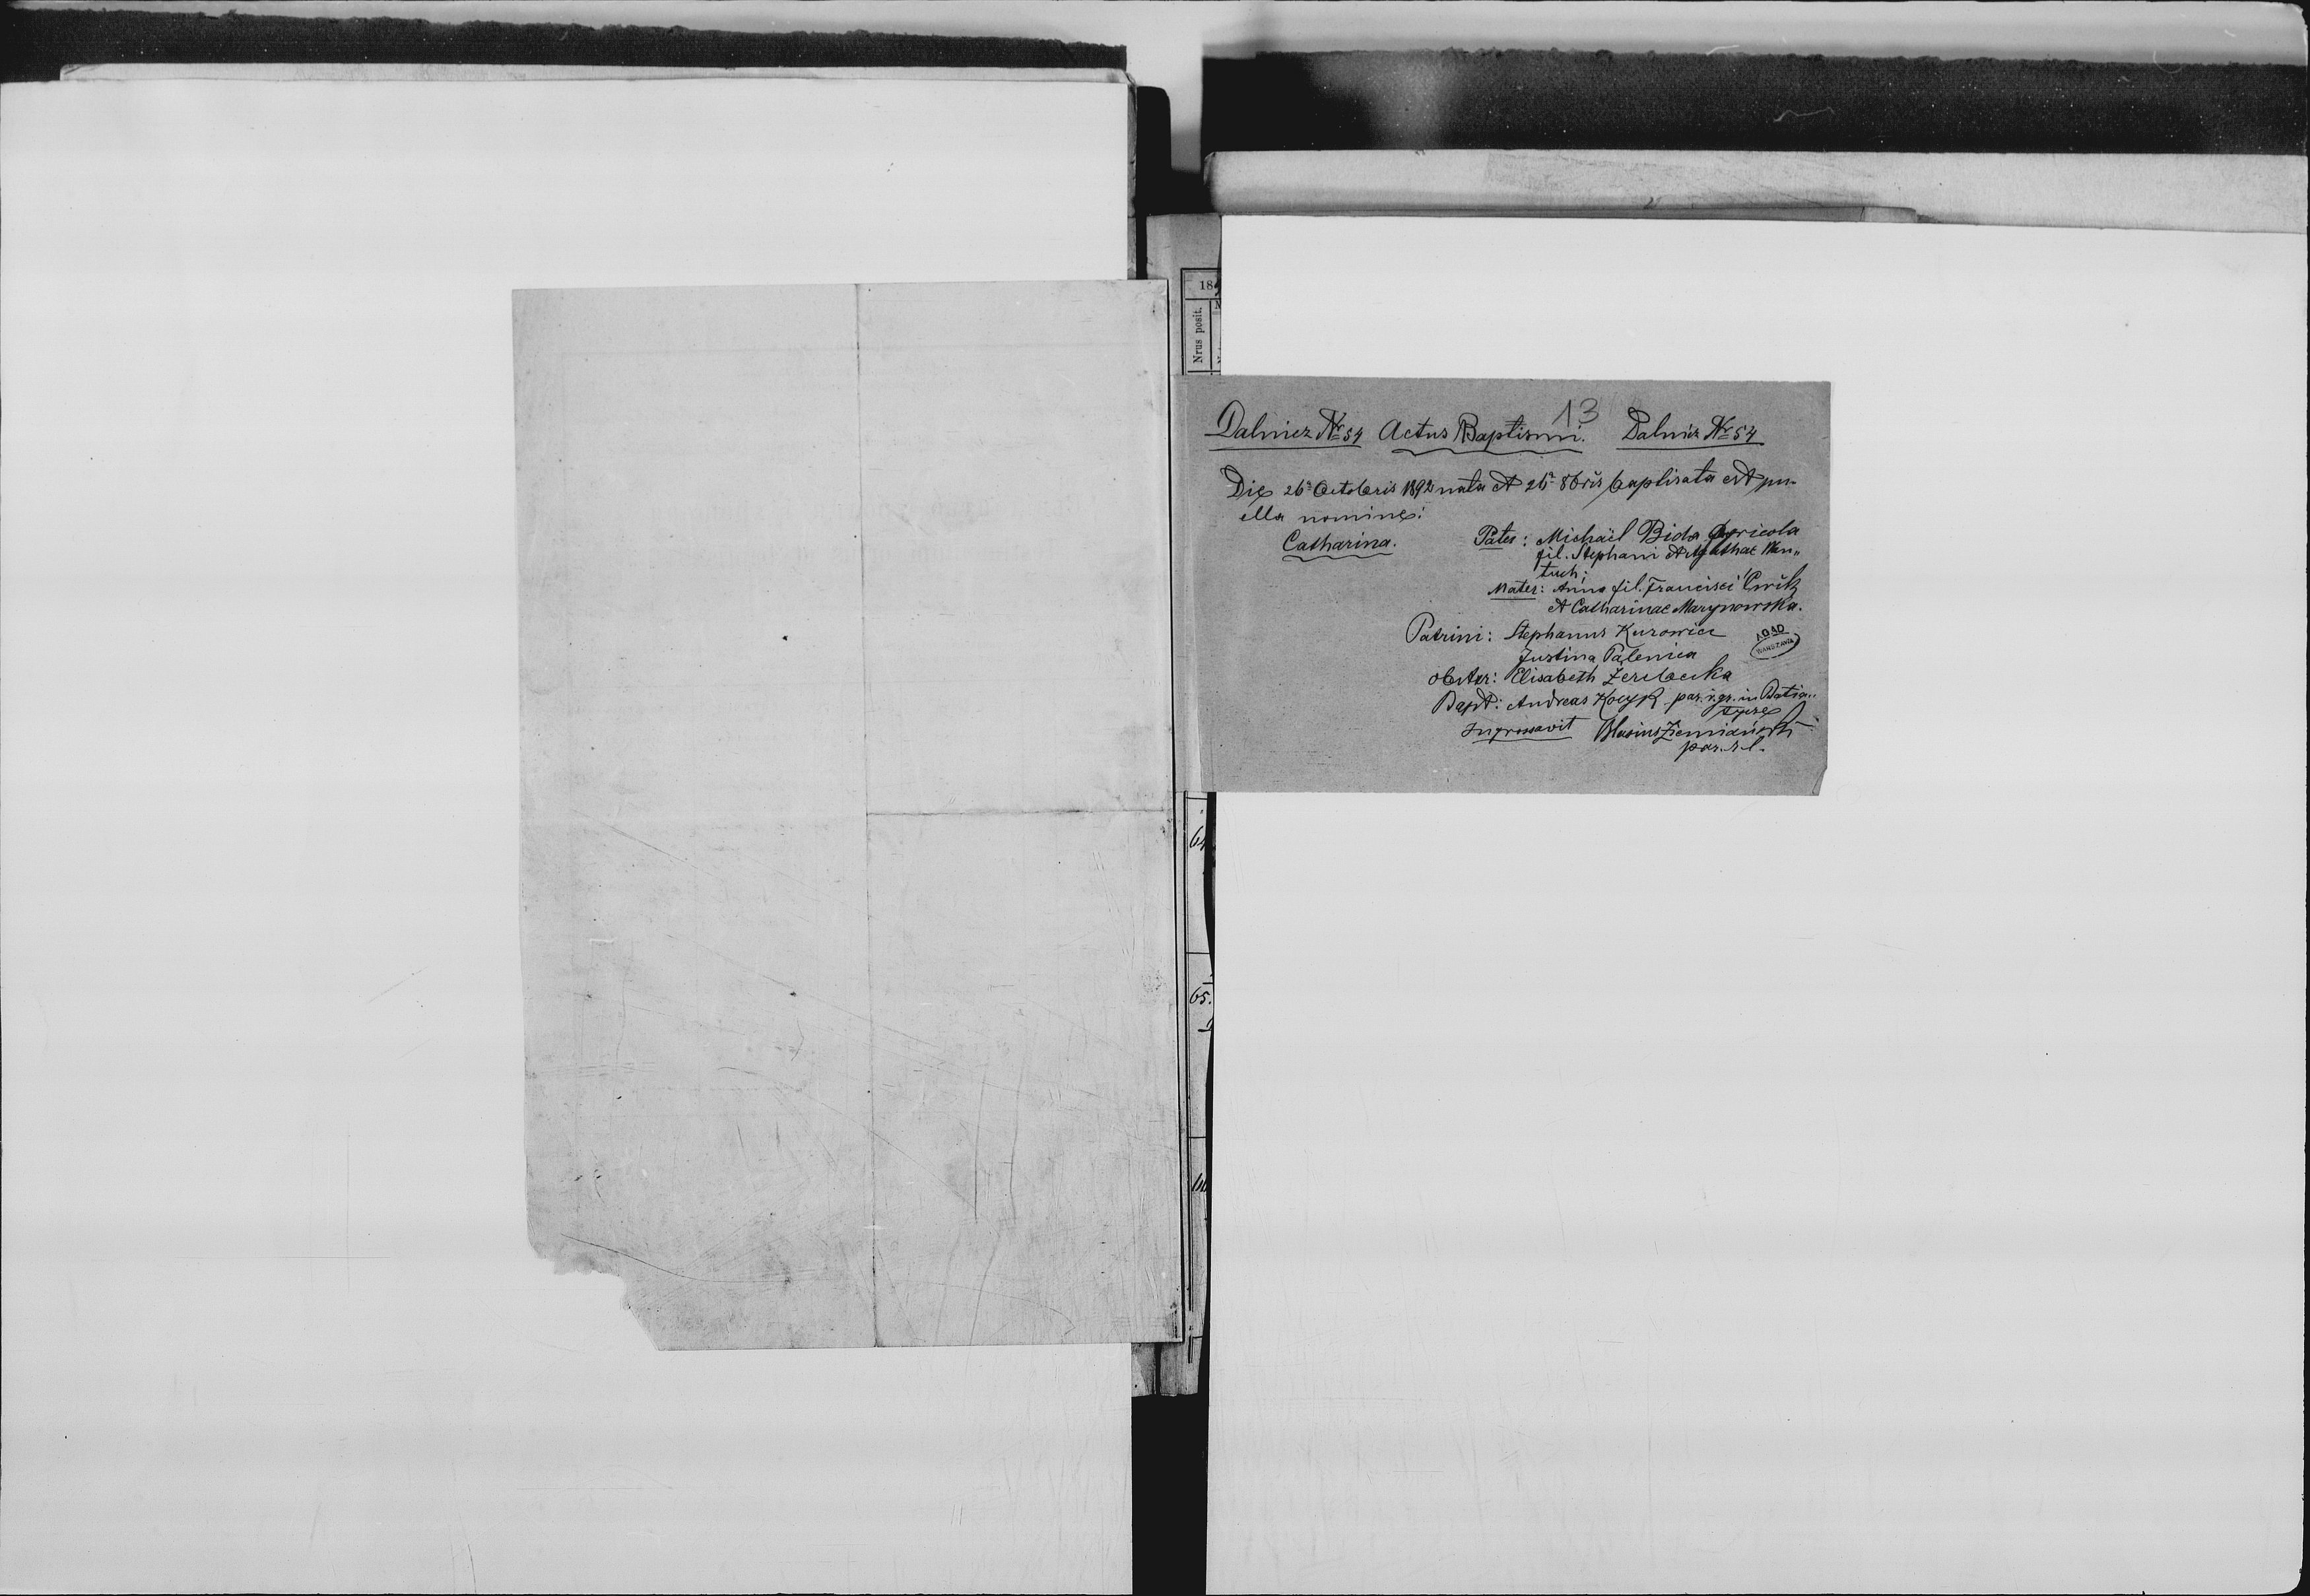 18
Nrus posit.
13
Dalnicz № 54 Actus Baptismi. Dalnicz № 54
Die 26ª Octobris 1892 nata et 26ª 8bris baptisata est pu-
ella nomine:
Catharina.
Pater: Michaël Bida Agricola
fil. Stephani et Agathae
tuch;
Mater: Anna fil. Francisci Ćwik
et Catharinae Marynowska.
Patrini: Stephanus Kurowicz
Justina Palenica
obster: Elisabeth
Bapt: Andreas Kocyk par. r. gr. in Batia-
tycze
Ingrossavit Blasius Ziemiański
par. r. l.
AGAD
WARSZAWA
64
65.